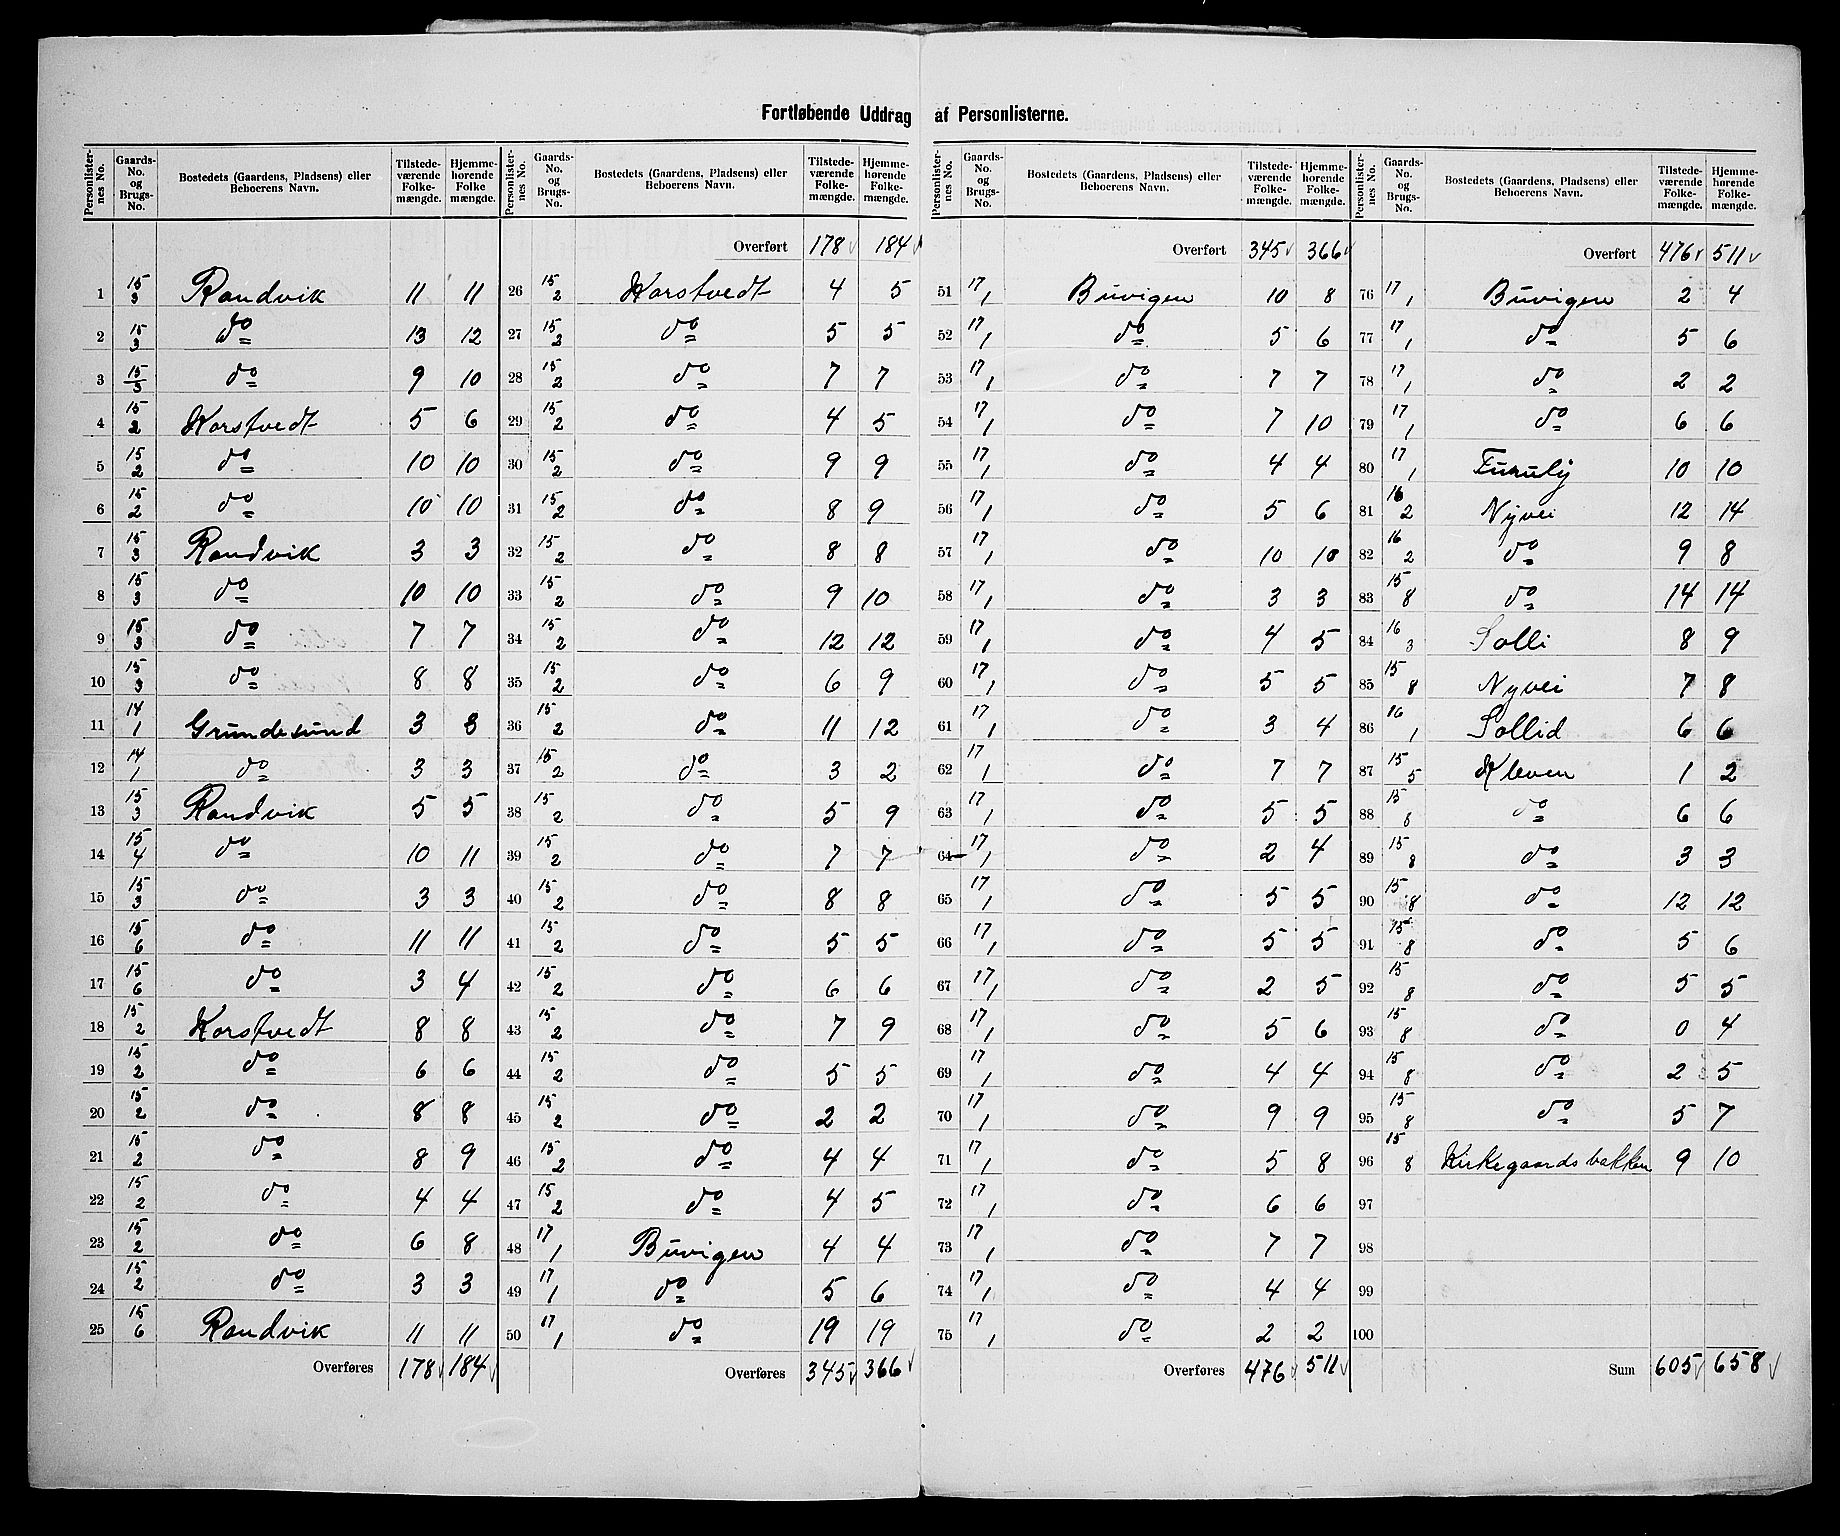 Fortløbende Uddrag af Personlisterne.
Personlister-nes No. | Gaards-No. og Brugs-No. | Bostedets (Gaardens, Pladsens) eller Beboerens Navn. | Tilstede-værende Folke-mængde. | Hjemme-hørende Folke mængde.
1 15/3 Randvik 11 11
2 15/3 do 13 12
3 15/3 do 9 10
4 15/2 Korstvedt 5 6
5 15/2 do 10 10
6 15/2 do 10 10
7 15/3 Randvik 3 3
8 15/3 do 10 10
9 15/3 do 7 7
10 15/3 do 8 8
11 14/1 Grundesund 3 3
12 14/1 do 3 3
13 15/3 Randvik 5 5
14 15/4 do 10 11
15 15/3 do 3 3
16 15/6 do 11 11
17 15/6 do 3 4
18 15/2 Korstvedt 8 8
19 15/2 do 6 6
20 15/2 do 8 8
21 15/2 do 8 9
22 15/2 do 4 4
23 15/2 do 6 8
24 15/2 do 3 3
25 15/6 Randvik 11 11
Overføres 178 184
Personlister-nes No. | Gaards-No. og Brugs-No. | Bostedets (Gaardens, Pladsens) eller Beboerens Navn. | Tilstede-værende Folke-mængde. | Hjemme-hørende Folke-mængde.
Overført 178 184
26 15/2 Korstvedt 4 5
27 15/2 do 5 5
28 15/2 do 7 7
29 15/2 do 4 5
30 15/2 do 9 9
31 15/2 do 8 9
32 15/2 do 8 8
33 15/2 do 9 10
34 15/2 do 12 12
35 15/2 do 6 9
36 15/2 do 11 12
37 15/2 do 3 2
38 15/2 do 5 9
39 15/2 do 7 7
40 15/2 do 8 8
41 15/2 do 5 5
42 15/2 do 6 6
43 15/2 do 7 9
44 15/2 do 5 5
45 15/2 do 2 2
46 15/2 do 4 4
47 15/2 do 4 5
48 17/1 Buvigen 4 4
49 17/1 do 5 6
50 17/1 do 19 19
Overføres 345 366
Personlister-nes No. | Gaards-No. og Brugs-No. | Bostedets (Gaardens, Pladsens) eller Beboerens Navn. | Tilstede-værende Folke-mængde. | Hjemme-hørende Folke-mængde.
Overført 345 366
51 17/1 Buvigen 10 8
52 17/1 do 5 6
53 17/1 do 7 7
54 17/1 do 7 10
55 17/1 do 4 4
56 17/1 do 5 6
57 17/1 do 10 10
58 17/1 do 3 3
59 17/1 do 4 5
60 17/1 do 5 5
61 17/1 do 3 4
62 17/1 do 7 7
63 17/1 do 5 5
64 17/1 do 2 4
65 17/1 do 5 5
66 17/1 do 5 5
67 17/1 do 2 5
68 17/1 do 5 6
69 17/1 do 4 4
70 17/1 do 9 9
71 17/1 do 5 8
72 17/1 do 6 6
73 17/1 do 7 7
74 17/1 do 4 4
75 17/1 do 2 2
Overføres 476 511
Personlister-nes No. | Gaards-No. og Brugs-No. | Bostedets (Gaardens, Pladsens) eller Beboerens Navn. | Tilstede-værende Folke-mængde. | Hjemme-hørende Folke-mængde.
Overført 476 511
76 17/1 Buvigen 2 4
77 17/1 do 5 6
78 17/1 do 2 2
79 17/1 do 6 6
80 17/1 Furulÿ 10 10
81 16/2 Nyvei 12 14
82 16/2 do 9 8
83 15/8 do 14 14
84 16/3 Solli 8 9
85 15/8 Nyvei 7 8
86 16/1 Sollid 6 6
87 15/5 Kleven 1 2
88 15/8 do 6 6
89 15/8 do 3 3
90 15/8 do 12 12
91 15/8 do 5 6
92 15/8 do 5 5
93 15/8 do 0 4
94 15/8 do 2 5
95 15/8 do 5 7
96 15/8 Kirkegaardsbakken 9 10
97
98
99
100
Sum 605 658